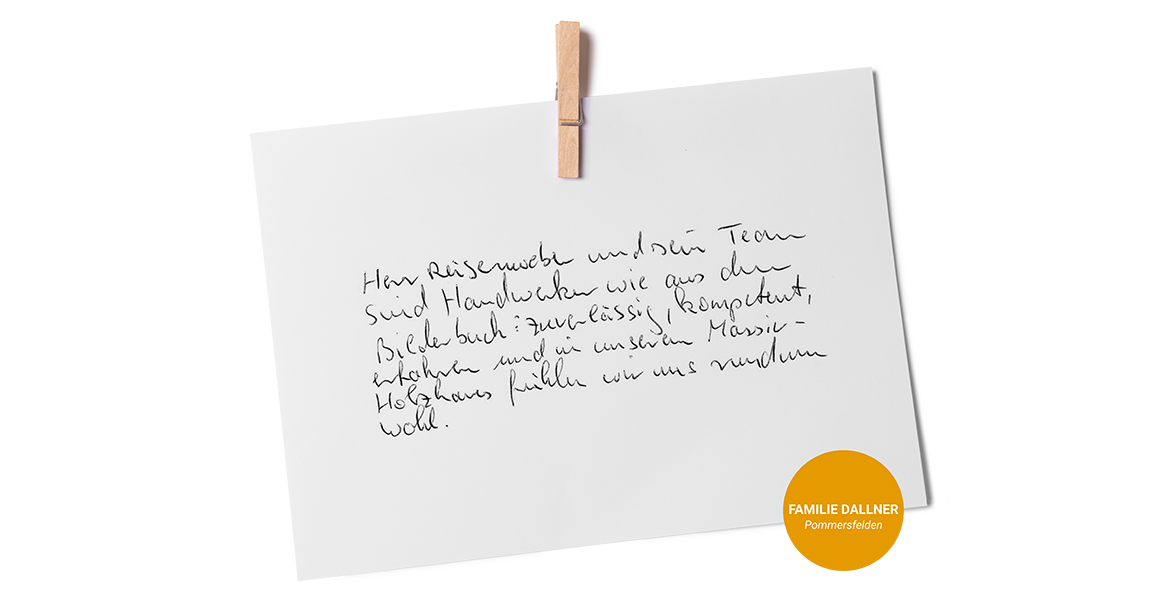 Herr Reisenweber und sein Team
sind Handwerker wie aus dem
Bilderbuch: zuverlässig, kompetent,
erfahren und in unserem Massiv-
Holzhaus fühlen wir uns rundum
wohl.
FAMILIE DALLNER
Pommersfelden